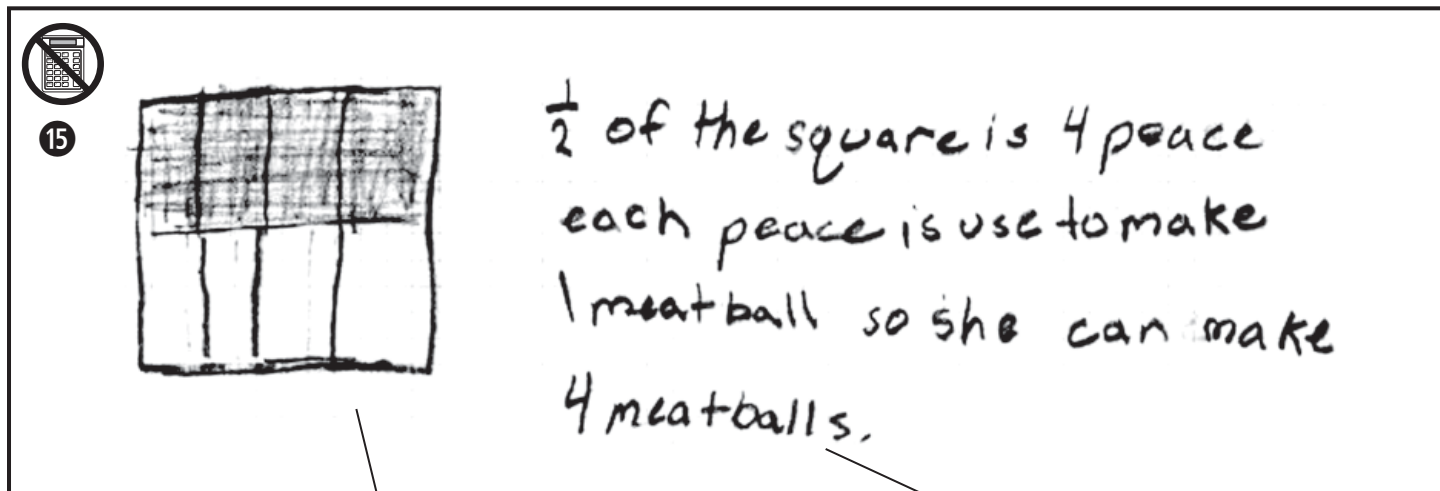 15
1/2 of the square is 4 peace
each peace is use to make
1 meatball so she can make
4 meatballs.